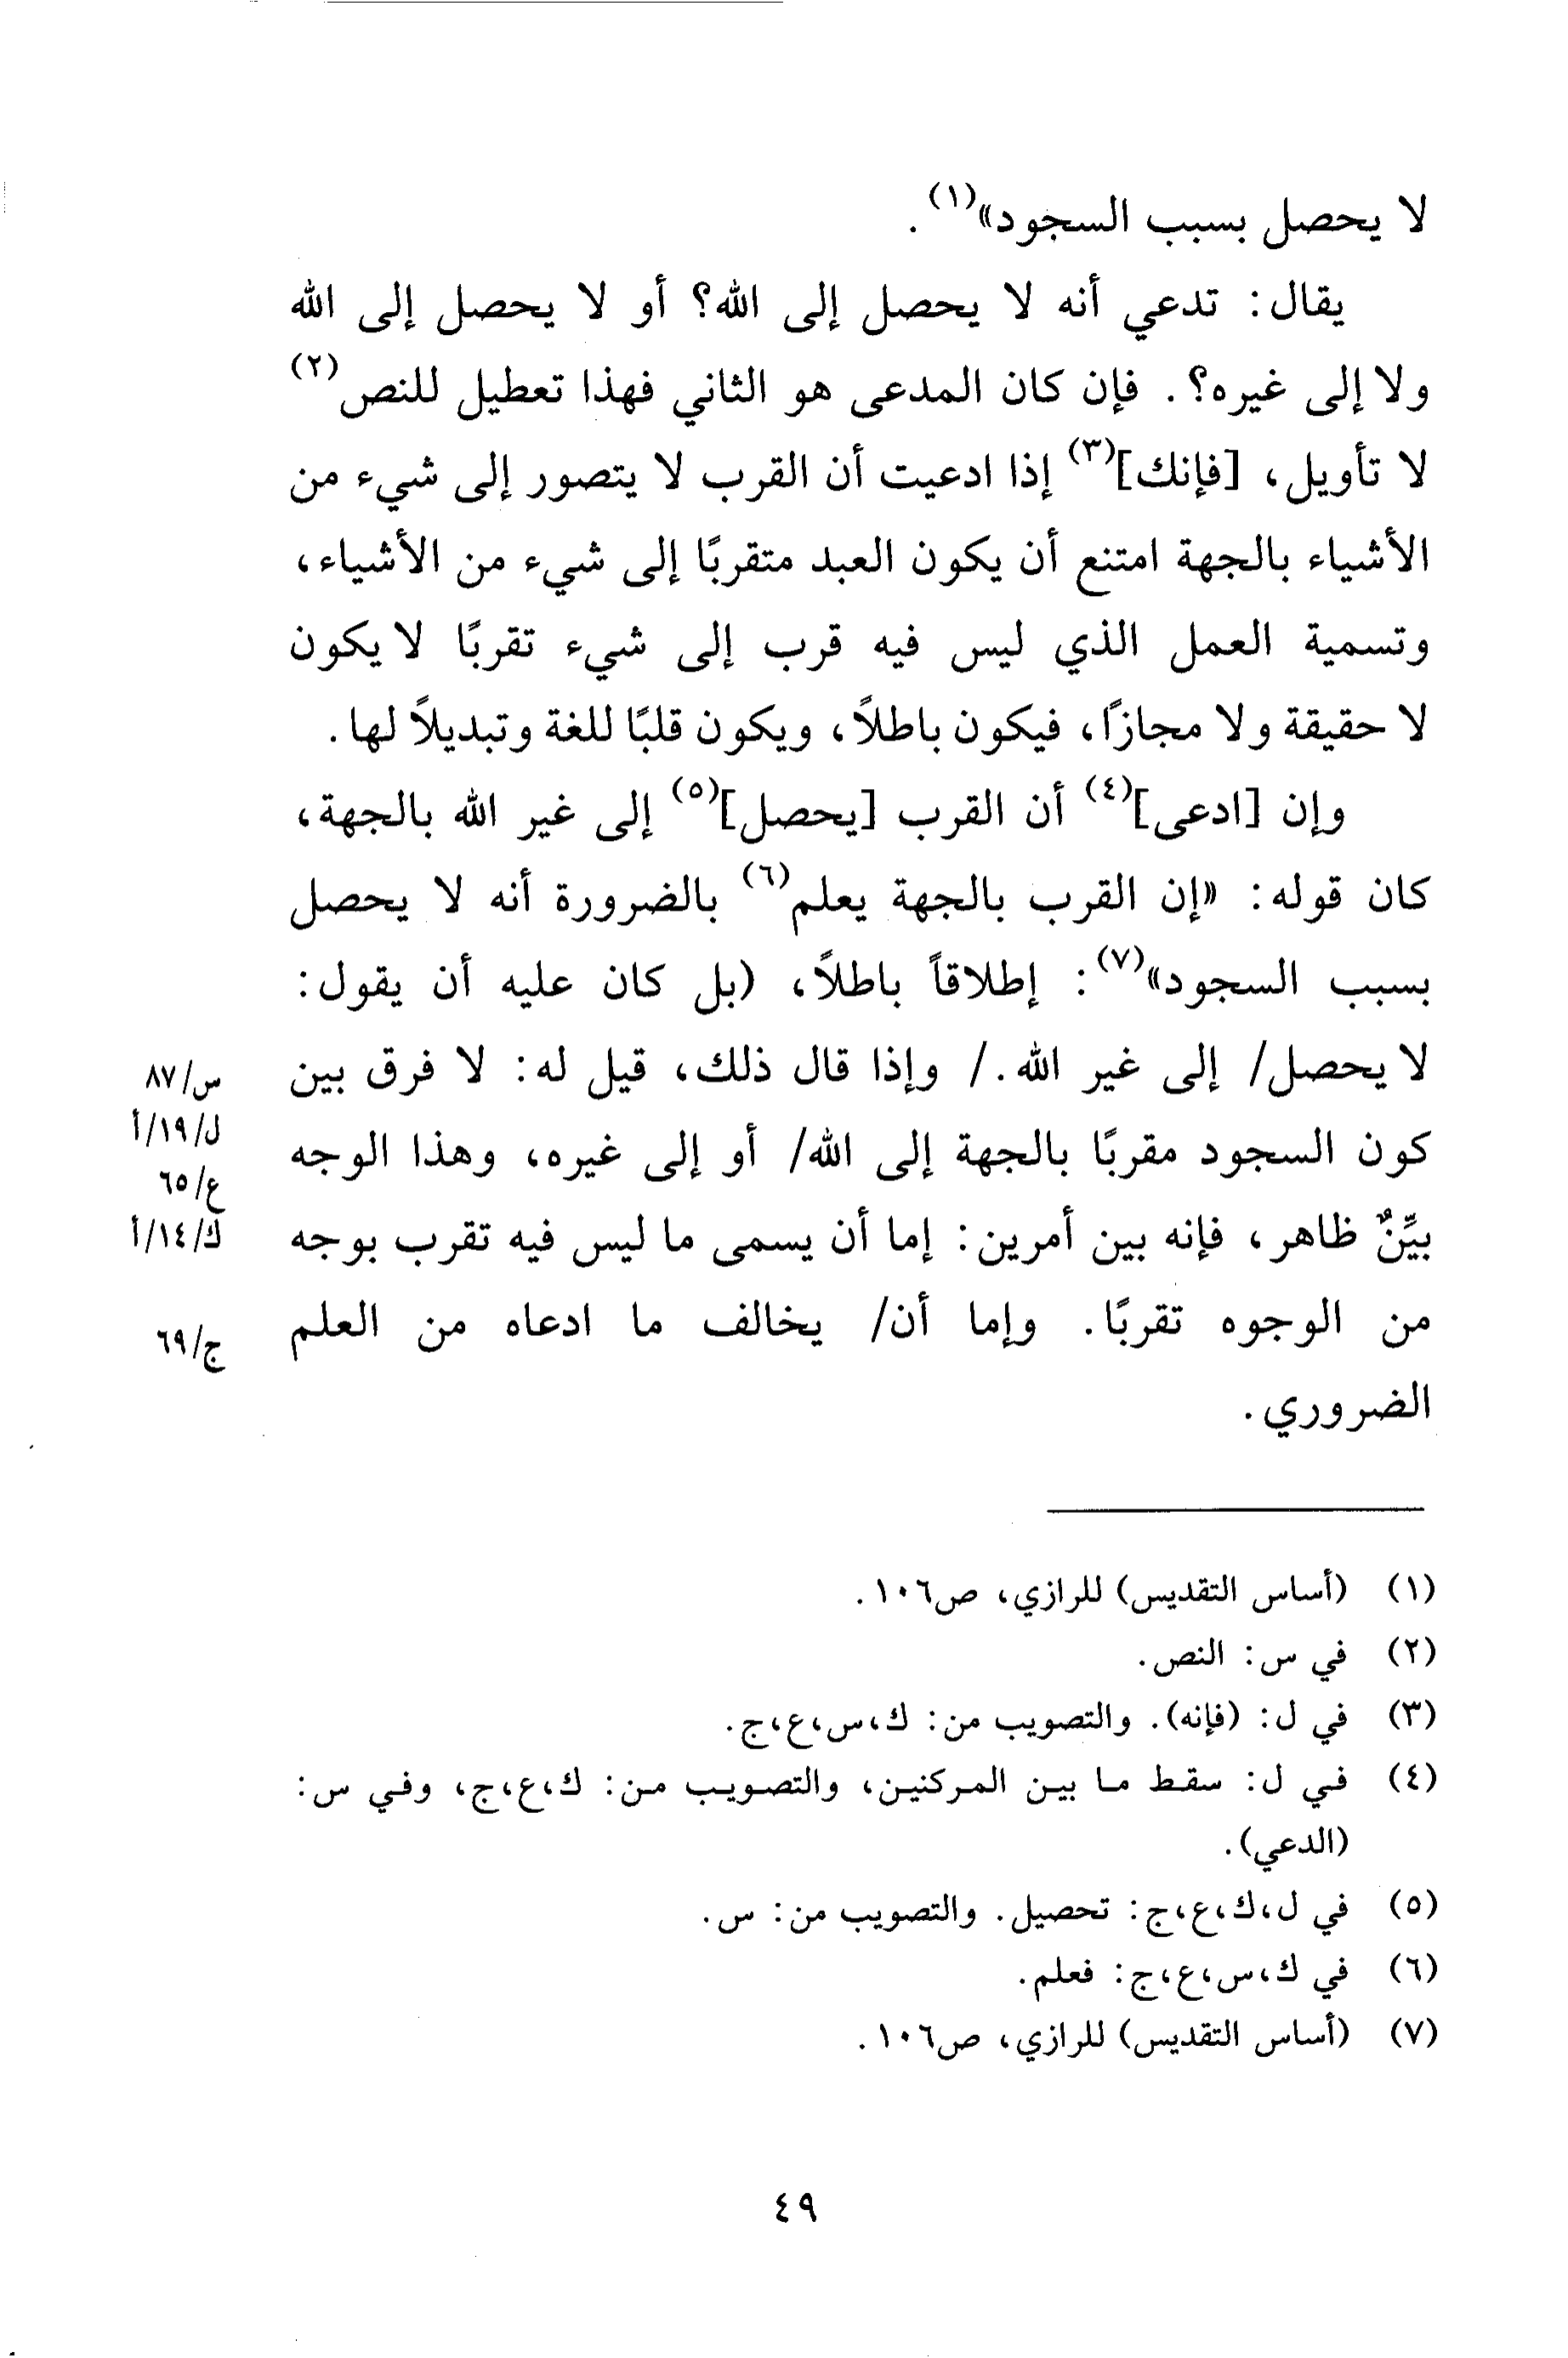 لا يحصل بسبب السجود»(١).
يقال: تدعي أنه لا يحصل إلى الله؟ أو لا يحصل إلى الله
ولا إلى غيره؟. فإن كان المدعى هو الثاني فهذا تعطيل للنص(٢)
لا تأويل، [فإنك](٣) إذا ادعيت أن القرب لا يتصور إلى شيء من
الأشياء بالجهة امتنع أن يكون العبد متقربًا إلى شيء من الأشياء،
وتسمية العمل الذي ليس فيه قرب إلى شيء تقربًا لا يكون
لا حقيقة ولا مجازًا، فيكون باطلاً، ويكون قلبًا للغة وتبديلاً لها.
وإن [ادعى](٤) أن القرب [يحصل](٥) إلى غير الله بالجهة،
كان قوله: «إن القرب بالجهة يعلم(٦) بالضرورة أنه لا يحصل
بسبب السجود»(٧): إطلاقاً باطلاً، (بل كان عليه أن يقول:
لا يحصل/ إلى غير الله./ وإذا قال ذلك، قيل له: لا فرق بين
س/٨٧
كون السجود مقربًا بالجهة إلى الله/ أو إلى غيره، وهذا الوجه
ل/١٩/أ
ع/٦٥
بيِّنٌ ظاهر، فإنه بين أمرين: إما أن يسمى ما ليس فيه تقرب بوجه
ك/١٤/أ
من الوجوه تقربًا. وإما أن/ يخالف ما ادعاه من العلم
ج/٦٩
الضروري.
(١) (أساس التقديس) للرازي، ص١٠٦.
(٢) في س: النص.
(٣) في ل: (فإنه). والتصويب من: ك،س،ع،ج.
(٤) في ل: سقط ما بين المركنين، والتصويب من: ك،ع،ج، وفي س:
(الدعي).
(٥) في ل،ك،ع،ج: تحصيل. والتصويب من: س.
(٦) في ك،س،ع،ج: فعلم.
(٧) (أساس التقديس) للرازي، ص١٠٦.
٤٩